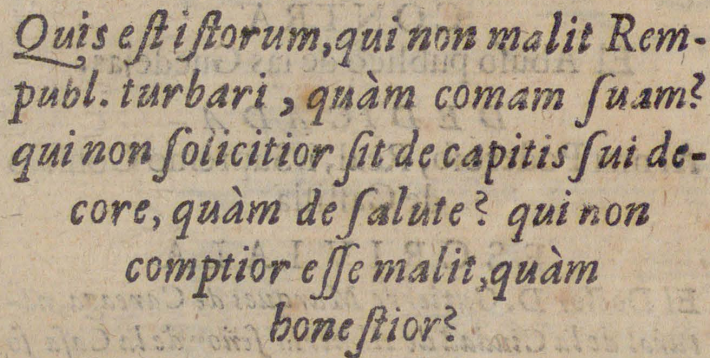 Quis eſt iſtorum, qui non malit Rem-
publ. turbari, quàm comam ſuam?
qui non ſolicitior ſit de capitis ſui de-
core, quàm de ſalute? qui non
comptior eſſe malit, quàm
honeſtior?